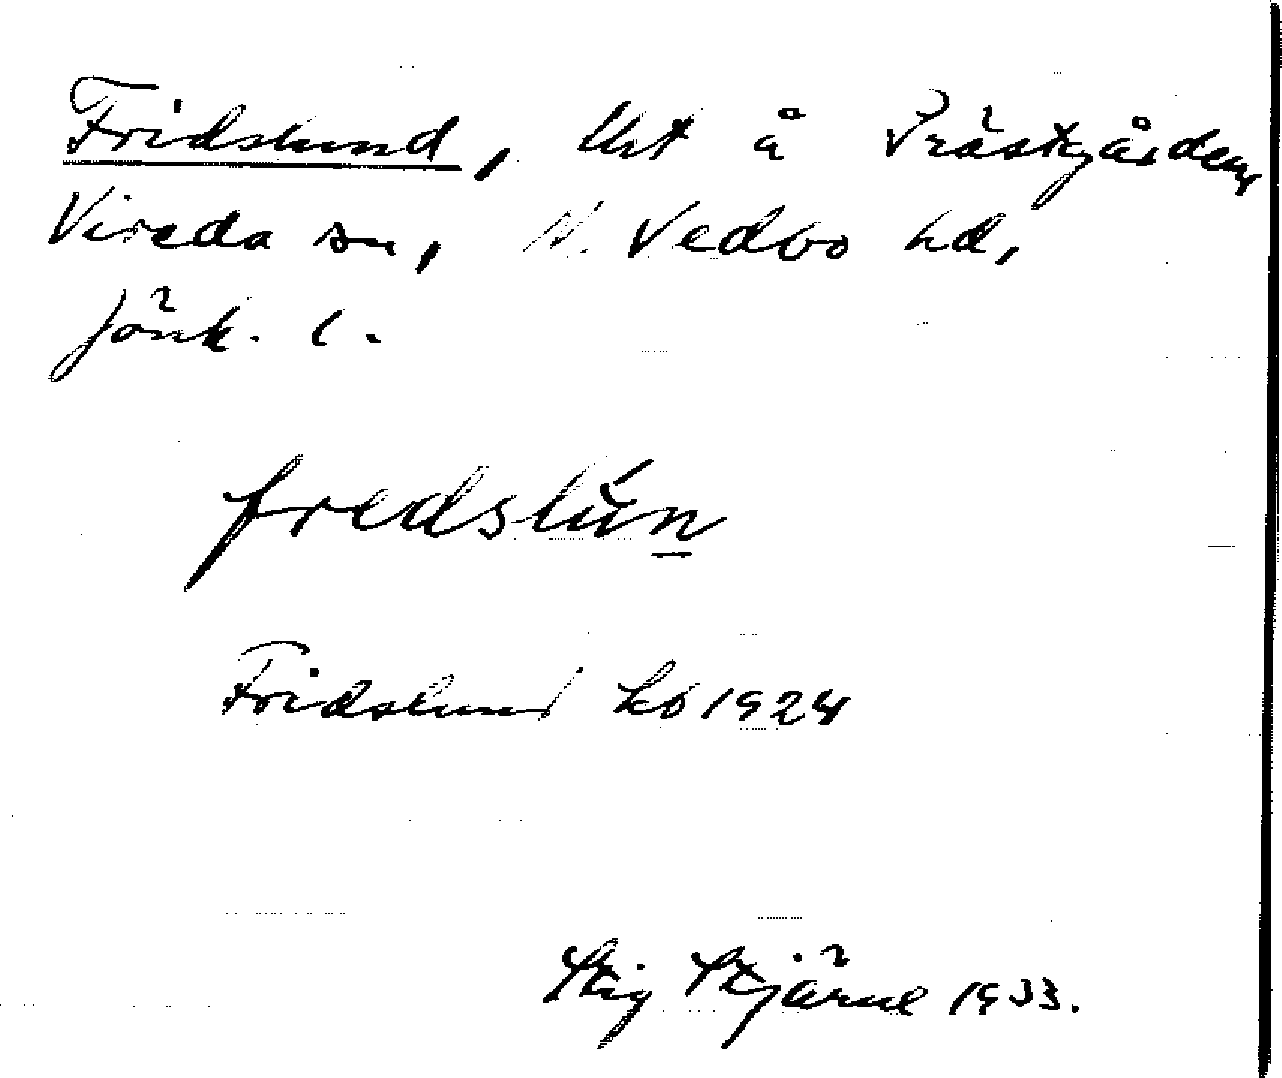 Fridslund, lht å Prästgården,
Vireda sn, N. Vedbo hd,
Jönk. l.
fredslún
Fridslund kb 1924
Stig Stjärne 1933.